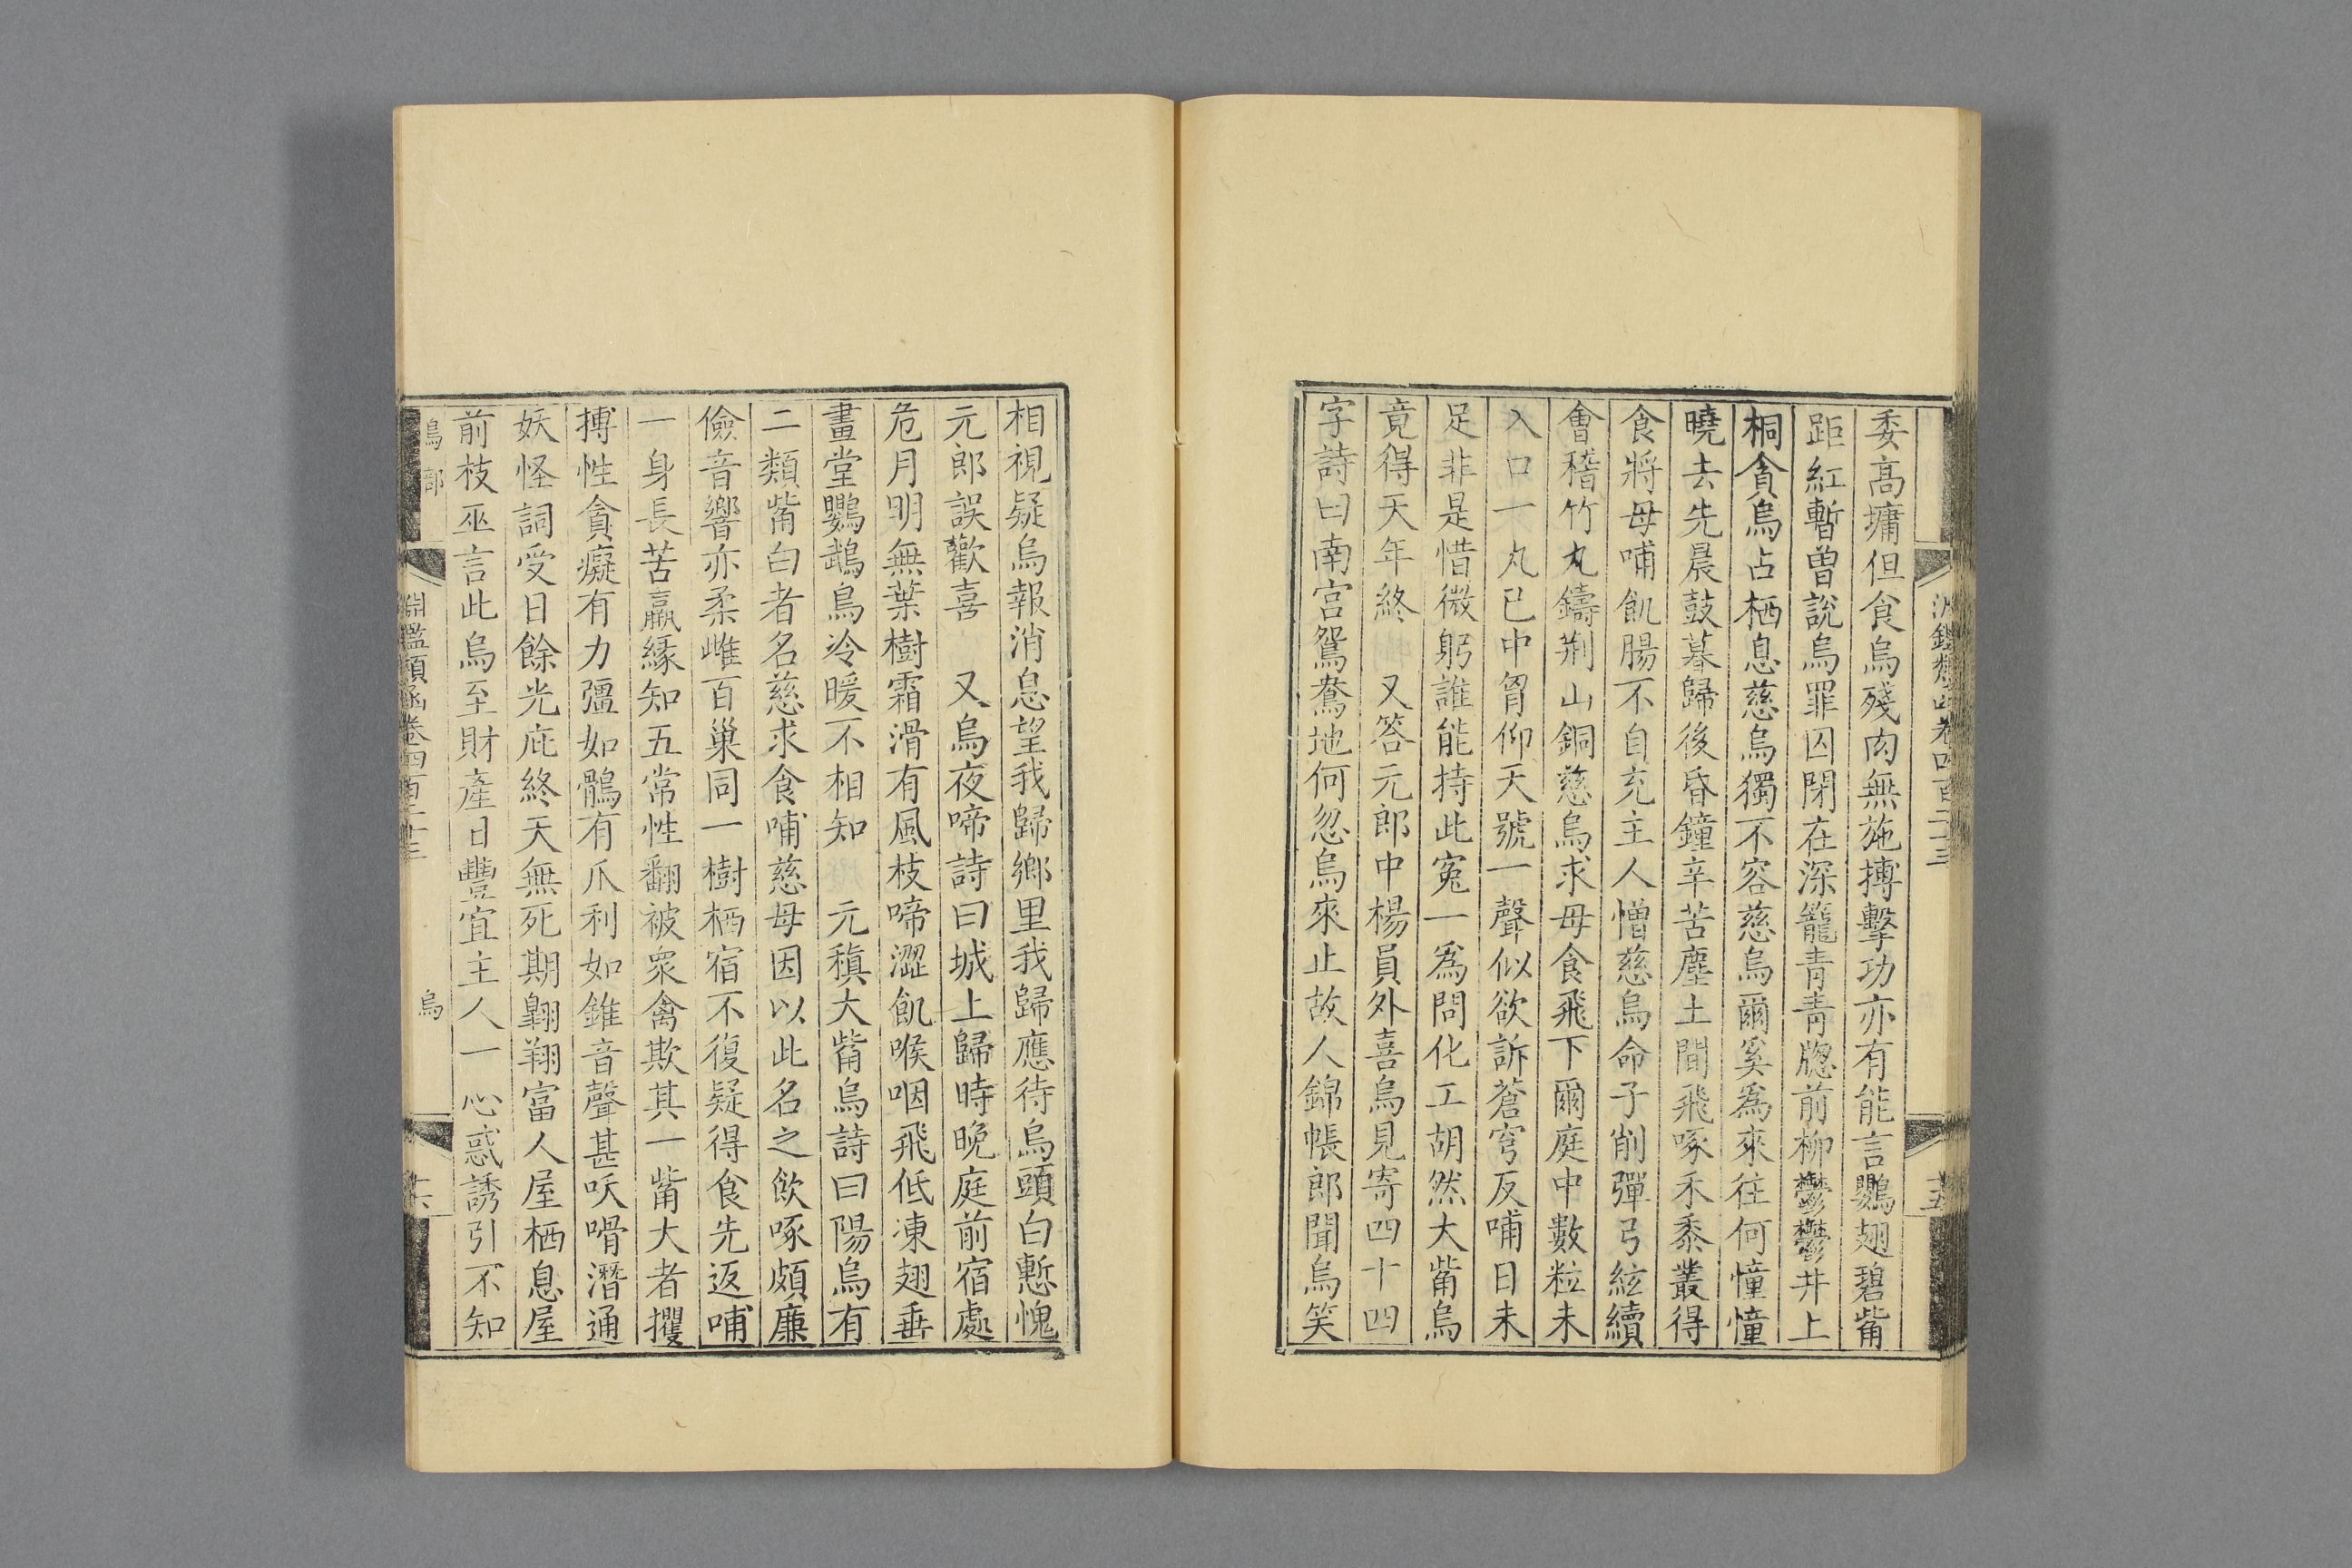 淵鑑類函卷四百二十三
十五
委高墉但食烏殘肉無施搏擊功亦有能言鸚翅碧觜
距紅暫曽說烏罪囚閉在深籠青青牕前柳鬱鬱井上
桐貪烏占栖息慈烏獨不容慈烏爾奚爲來往何憧憧
曉去先晨鼓暮歸後昏鐘辛苦塵土間飛啄禾黍叢得
食將母哺飢腸不自充主人憎慈烏命子削彈弓絃續
會稽竹丸鑄荆山銅慈烏求母食飛下爾庭中數粒未
入口一丸已中胷仰天號一聲似欲訴蒼穹反哺日未
足非是惜微躬誰能持此寃一爲問化工胡然大觜烏
竟得天年終 又答元郎中楊員外喜烏見寄四十四
字詩曰南宮鴛鴦地何忽烏來止故人錦帳郎聞烏笑
相視疑烏報消息望我歸鄉里我歸應待烏頭白慙愧
元郎誤歡喜 又烏夜啼詩曰城上歸時晚庭前宿處
危月明無葉樹霜滑有風枝啼澀飢喉咽飛低凍翅垂
畫堂鸚鵡鳥冷暖不相知 元稹大觜烏詩曰陽烏有
二類觜白者名慈求食哺慈母因以此名之飲啄頗廉
儉音響亦柔雌百巢同一樹栖宿不復疑得食先返哺
一身長苦羸緣知五常性翻被衆禽欺其一觜大者攫
搏性貪癡有力彊如鶻有爪利如錐音聲甚㕭嗗潛通
妖怪詞受日餘光庇終天無死期翺翔富人屋栖息屋
前枝巫言此烏至財產日豐宜主人一心惑誘引不知
鳥部
淵鑑類函卷四百二十三
烏
十六